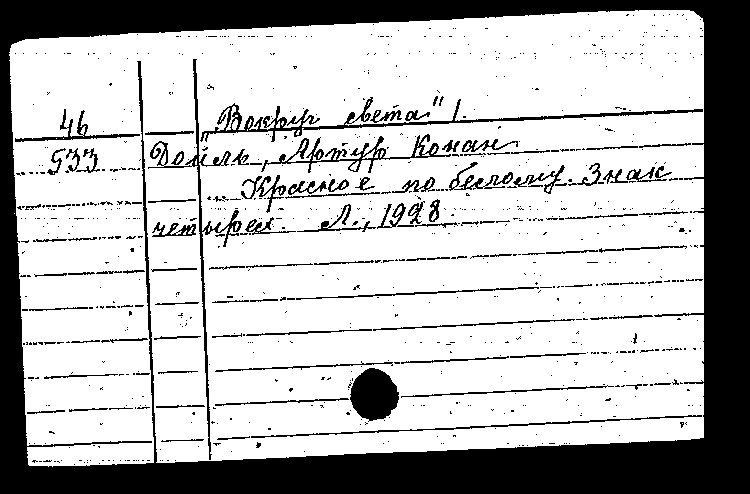 46
533
"Вокруг света" 1.
Дойль, Артур Конан
Красное по белому. Знак
четырех. Л., 1928.